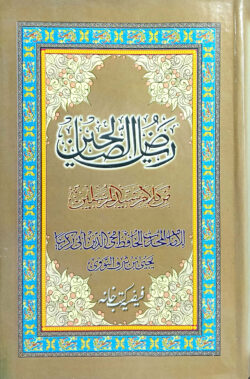 رياض الصالحين
من كلام سيد المرسلين
الامام المحدث الحافظ محي الدين ابي زكريا
يحيى بن شرف النووي